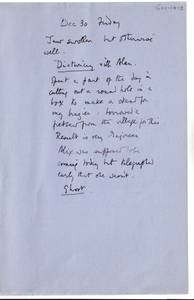 Dec 30 Friday
Jaw swollen but otherwise
well.
Dictionary with Alan.
Spent a part of the day in
cutting out a round hole in a
box to make a stand for
my
borrowed a
fretsaw from the village for this
Result is very
Alix was supposed to be
coming today but telegraphed
early that she wasn't.
Ghost